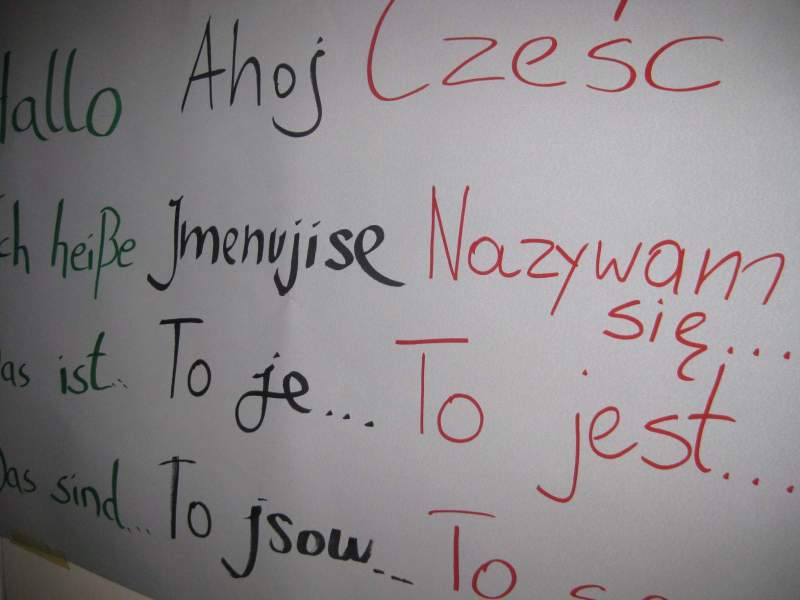 Hallo Ahoj Cześć
Ich heiße Jmenuji se Nazywam
się...
Das ist.. To je... To jest...
Das sind... To jsou... To